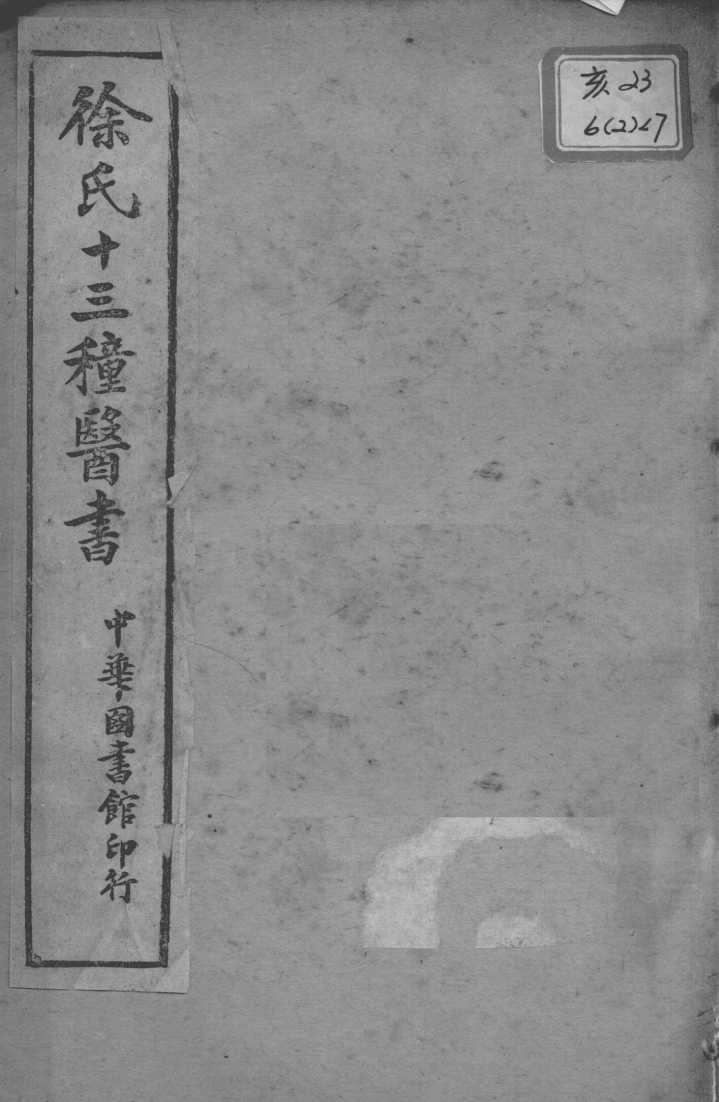 徐氏十三種醫書
中華國書館印行
亥23
6(2)27